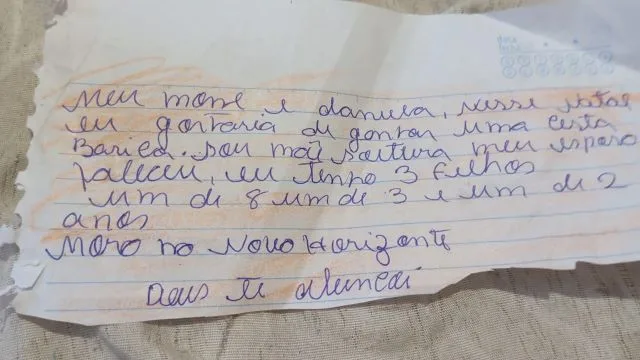 Meu nome e daniela, nesse natal
eu gostaria di ganhar uma cesta
Basica. sou mãe soltura meu esposo
faleceu, eu tenho 3 filhos
um di 8 um di 3 e um di 2
anos
Moro no Novo Horizonte
Deus ti abencoi